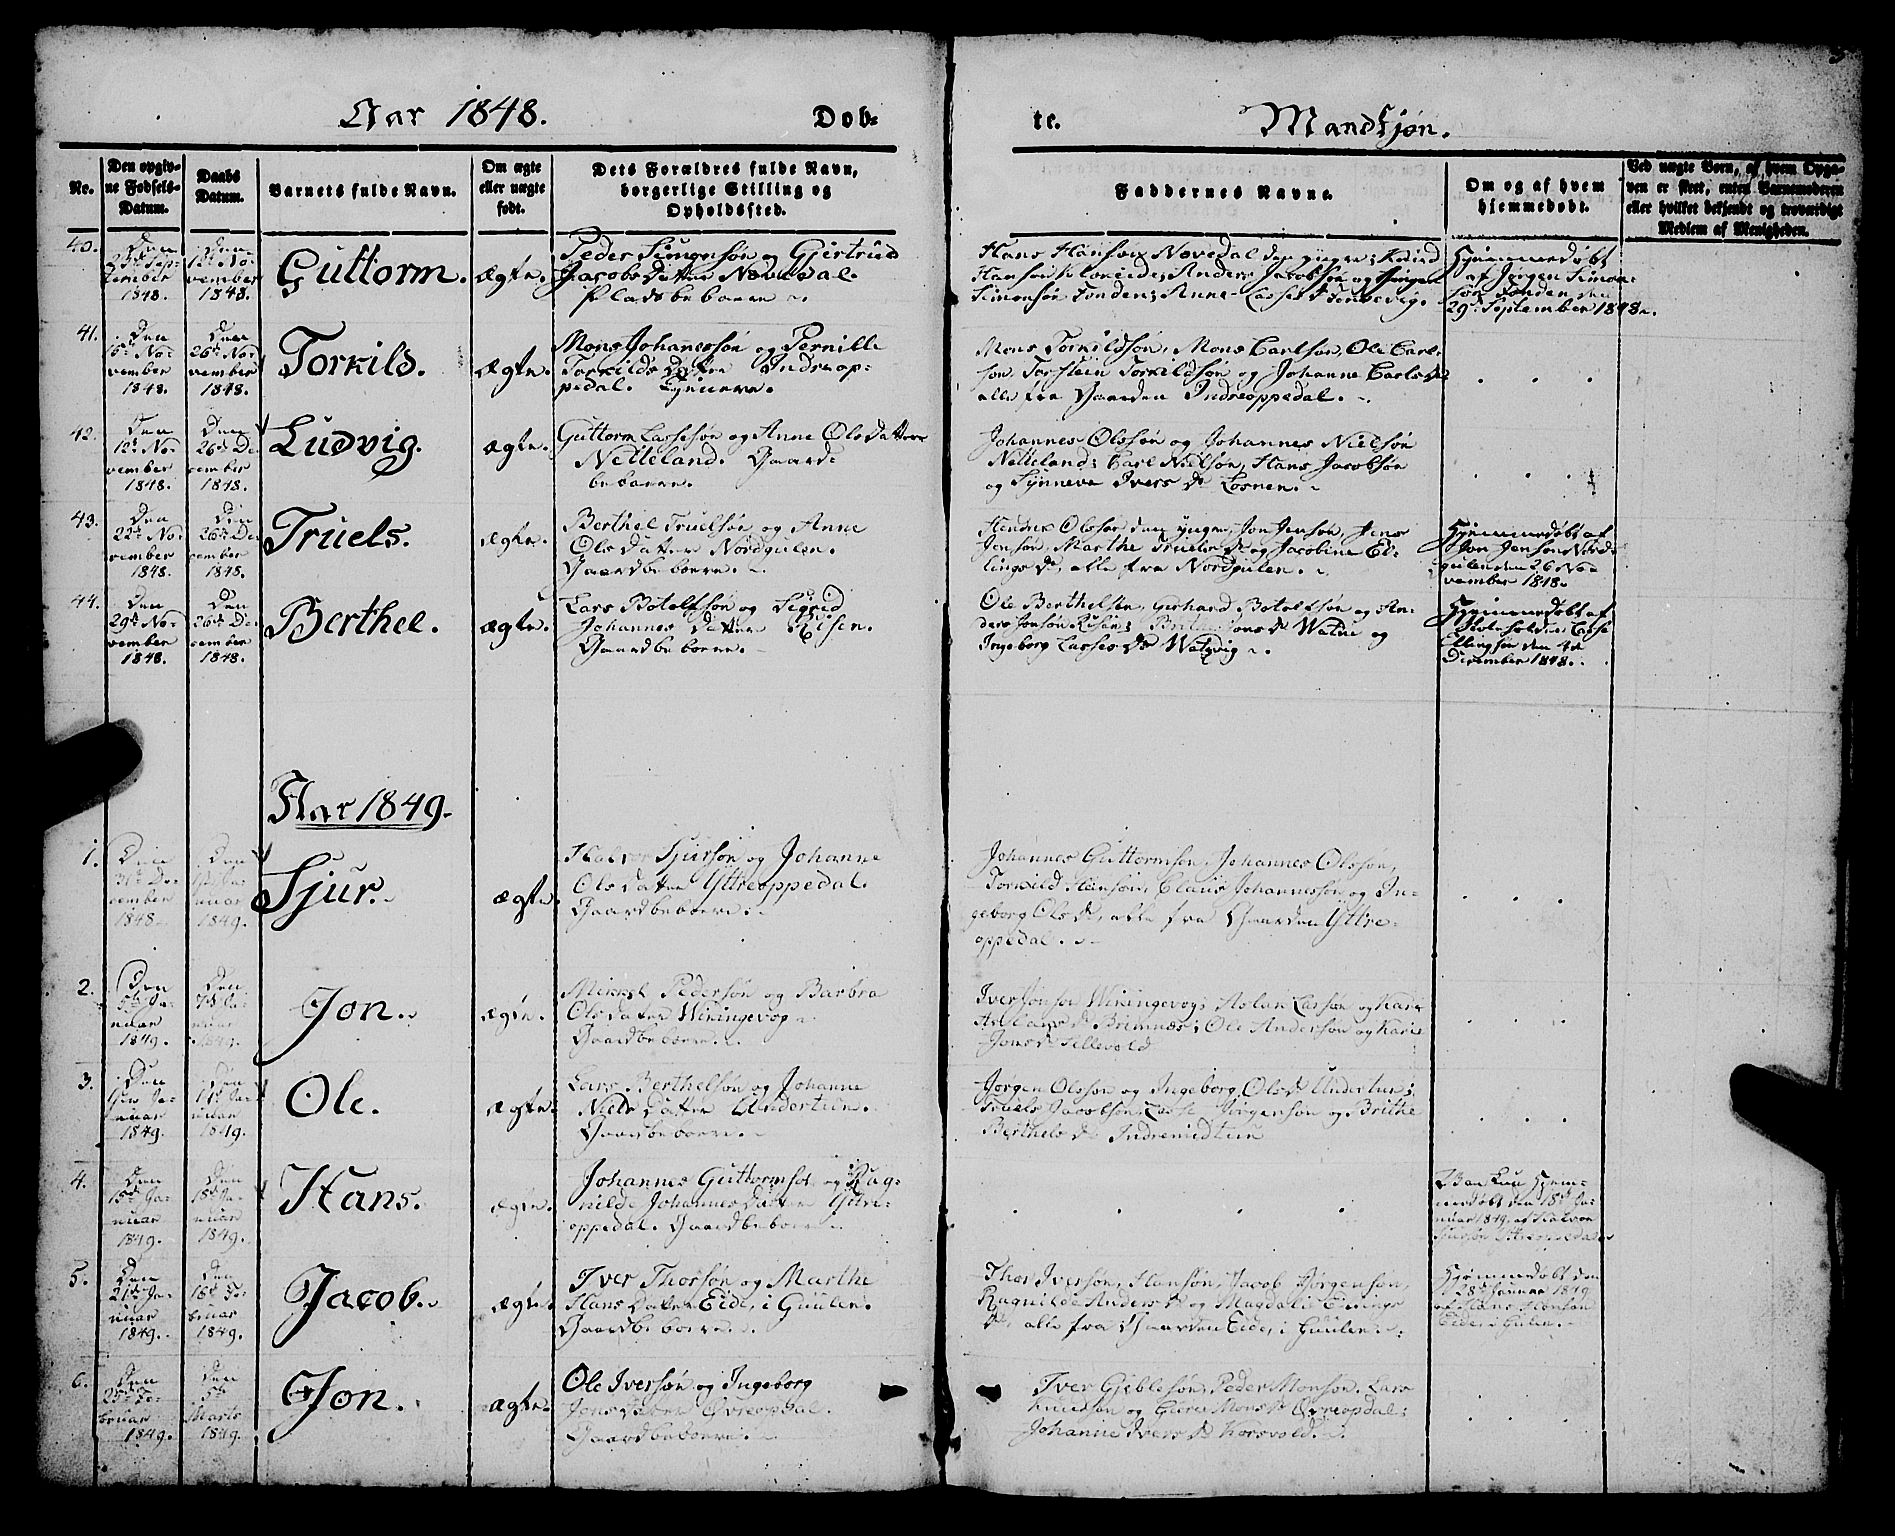 Aar 1848.
Døb-
te.
Mandkjøn.
No.
Den opgiv-
ne Fødsels-
Datum.
Daabs
Datum.
Barnets fulde Navn.
Om ægte
eller uægte
født.
Dets Forældres fulde Navn,
borgerlige Stilling og
Opholdssted.
Faddernes Navne.
Om og af hvem
hjemmedøbt.
Ved uægte Børn, af hvem Opga-
ven er skeet, enten Barnemoderen
eller hvilket bekjendt og troværdigt
Medlem af Menigheden.
40.
Den
Sep-
tember
1848.
Den
No-
vember
1848.
Guttorm.
ægte.
Peder Simonsøn og Gjertrud
Jacobs Datter Nævedal.
Pladsbeboere.
Hans Hansøn Nævedal den yngre; Knud
Hansøn; Anders Jacobsøn og Jørgen
Simonsøn Fonden; Anne Lasses D
Hjemmedøbt
af Jørgen Simon-
søn Fonden den
29de September 1848.
41.
Den
No-
vember
1848.
Den
26de No-
vember
1848.
Torkild.
ægte.
Mons Johannessøn og Pernille
Torkilds Datter Indreop-
pedal. Tjenere.
Mons Torkildsøn, Mons Carlsøn, Ole Carl-
søn, Torstein Torkildsøn og Johanne Carls Dr
alle fra Gaarden Indreoppedal.
42.
Den
12te No-
vember
1848.
Den
26de De-
cember
1848.
Ludvig.
ægte.
Guttorm Lassesøn og Anne Ols Datter
Netteland. Gaard-
beboere.
Johannes Olssøn og Johannes Nielsøn
Netteland; Carl Nielsøn, Hans Jacobsøn
og Synneva Ivers Dr Losnen.
43.
Den
22de No-
vember
1848.
Den
26de De-
cember
1848.
Truels.
ægte.
Berthel Truelsøn og Anne
Ols Datter Nordgulen.
Gaardbeboere.
Hendrik Olssøn den yngre, Jon Jensøn, Jens
Jensøn, Marthe Truels Dr og Jacobine El-
lings Dr, alle fra Nordgulen.
Hjemmedøbt af
Jon Jensøn Nord-
gulen den 26 No-
vember 1848.
44.
Den
29de No-
vember
1848.
Den
26de De-
cember
1848.
Berthel.
ægte.
Lars Botolfsøn og Sigrid
Johannes Datter Risen.
Gaardbeboere.
Ole Berthelsøn, Gerhard Botolfsøn og An-
ders Jonsøn Risen; Dr Watne og
Ingeborg Lasses Dr
Hjemmedøbt af
Lasse
Ellingsøn den 4de
December 1848.
Aar 1849.
1.
Den
31te De-
cember
1848.
Den
Ja-
nuar
1849.
Sjur.
ægte.
Halvor Sjursøn og Johanne
Ols Datter Yttreoppedal.
Gaardbeboere.
Johannes Guttormsøn, Johannes Olssøn,
Torkild Hansøn, Claus Johannessøn og In-
geborg Ols Dr, alle fra Gaarden Yttre-
oppedal.
2.
Den
5te Ja-
nuar
1849.
Den
7de Ja-
nuar
1849.
Jon.
ægte.
Mikkel Pedersøn og Barbra
Ols Datter Wiringevog
Gaardbeboere.
Iver Jonsøn Wiringevog; Aslak Lassøn og Kari
Aslaks Dr Brimnæs; Ole Andersøn og Kari
Jons Dr
3.
Den
Ja-
nuar
1849.
Den
14de Ja-
nuar
1849.
Ole.
ægte.
Lars Berthelsøn og Johanne
Niels Datter Undertun.
Gaardbeboere.
Jørgen Olssøn og Ingeborg Ols Dr Undertun;
Truels Jacobsøn, Lasse Jørgensøn og Brithe
Berthels Dr Indremidtun
4.
Den
15de Ja-
nuar
1849.
Den
18de Ja-
nuar
1849.
Hans.
ægte.
Johannes Guttormsøn og Rag-
nilde Johannes Datter Yttre-
oppedal. Gaardbeboere.
Blev kun Hjem-
medøbt den 18de Ja-
nuar 1849 af Halvor
Sjursøn Yttreoppedal.
5.
Den
21de Ja-
nuar
1849.
Den
18de Fe-
bruar
1849.
Jacob.
ægte.
Iver Thorsøn og Marthe
Hans Datter Eide, i Guulen.
Gaardbeboere.
Thor Iversøn, Hansøn, Jacob Jørgensøn,
Ragnilde Anders Dr og Magdali Ellings
Dr, alle fra Gaarden Eide, i Guulen.
Hjemmedøbt den
28de Januar 1849
af Hans Hansøn
Eide, i Gulen.
6.
Den
25de Fe-
bruar
1849.
Den
5te
Marts
1849.
Jon.
ægte.
Ole Iversøn og Ingeborg
Jons Datter Øvreopdal.
Gaardbeboere.
Iver Gjeblesøn, Peder Monsøn, Lars
Knudsøn og Mons Dr Øvreopdal;
Johanne Ivers Dr Korsvold.